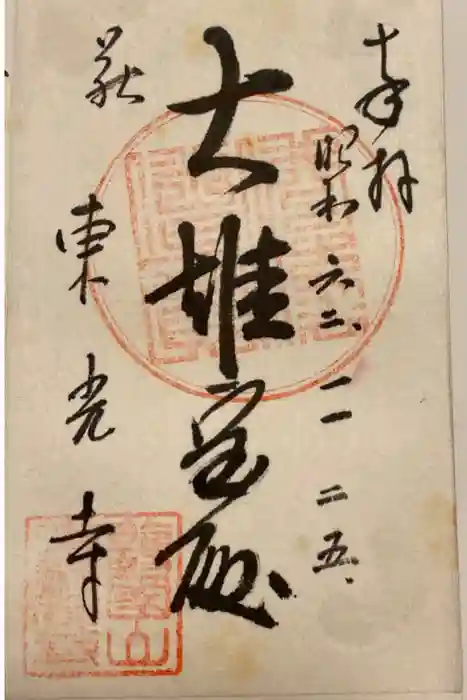 奉拝
昭和六二、一一、二五、
大雄宝殿
萩
東光寺